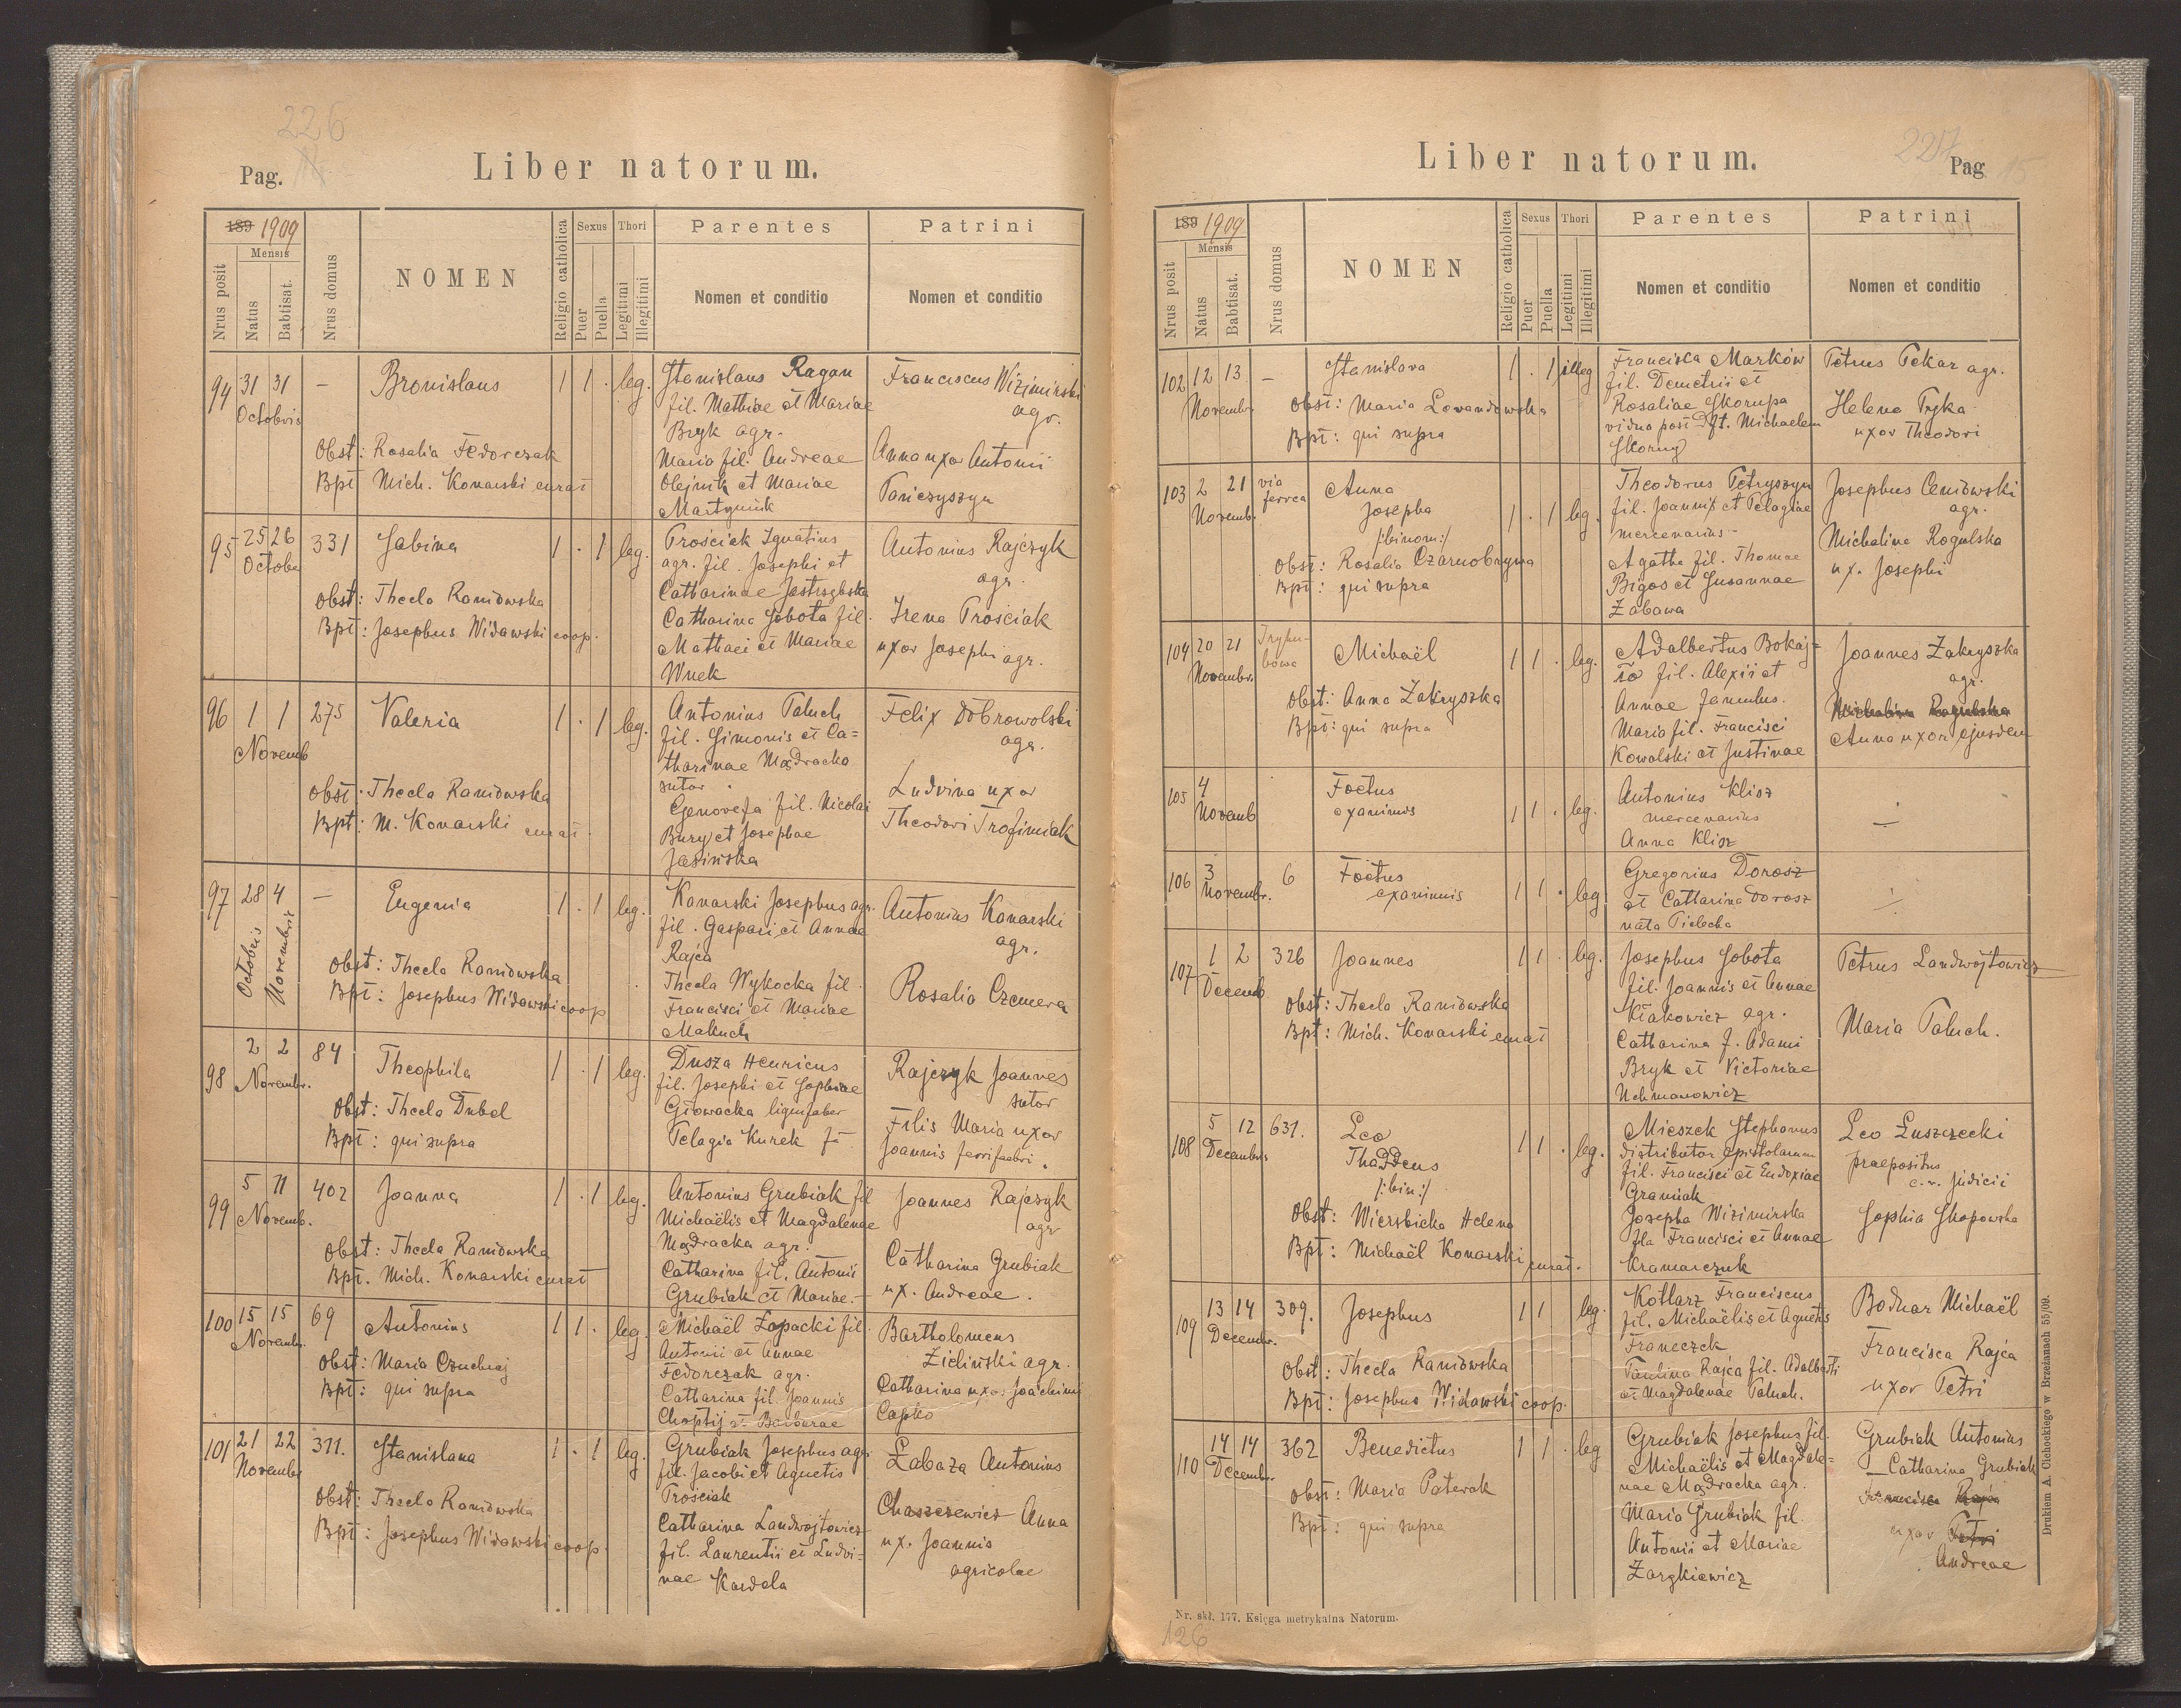 226
Pag.
Liber natorum.
189 1909
Mensis
Nrus posit
Natus
Babtisat.
Nrus domus
NOMEN
Religio catholica
Sexus
Puer
Puella
Thori
Legitimi
Illegitimi
Parentes
Nomen et conditio
Patrini
Nomen et conditio
94 31 31 – Bronislaus 1 1 . leg.
Octobris
Obst: Rosalia Fedorczak
Bpt Mich. Konarski curat
Stanislaus Ragan
fil. Mathiae et Mariae
Bryk agr.
Maria fil. Andreae
Olejnik et Mariae
Martyniuk
Franciscus Wizimirski
agr.
Anna uxor Antonii
Tanczyszyn
95 25 26 331 Sabina 1 . 1 leg.
Octobr
Obst: Thecla Raniowska
Bpt: Josephus Widawski coop.
Prosciak Ignatius
agr. fil. Josephi et
Catharinae Jastrzębska
Catharina Sobota fil.
Mathaei et Mariae
Wnek
Antonius Rajczyk
agr.
Irena Prosciak
uxor Josephi agr.
96 1 1 275 Valeria 1 . 1 leg.
Novemb
Obst: Thecla Raniowska
Bpt: M. Konarski curat.
Antonius Paluch
fil. Simonis et Ca=
tharinae Mądracka
sutor.
Genovefa fil. Nicolai
Bury et Josephae
Jasińska
Felix Dobrowolski
agr.
Ludvina uxor
Theodori Trofimiak
97 28 4 – Eugenia 1 . 1 leg.
Octobris
Novembris
Obst: Thecla Raniowska
Bpt: Josephus Widawski coop
Konarski Josephus agr.
fil. Gaspari et Annae
Rajca
Thecla Wykocka fil.
Francisci et Mariae
Makuch
Antonius Konarski
agr.
Rosalia Czemera
98 2 2 84 Theophila 1 . 1 leg.
Novembr.
Obst: Thecla Dubel
Bpt: qui supra
Dusza Henricus
fil. Josephi et Sophiae
Głowacka lignifaber
Pelagia Kurek
Rajczyk Joannes
sutor
Filis Maria uxor
Joannis ferrifabri.
99 5 11 402 Joanna 1 . 1 leg.
Novemb.
Obst: Thecla Raniowska
Bpt. Mich. Konarski curat
Antonius Grubiak fil
Michaëlis et Magdalenae
Mądracka agr.
Catharina fil. Antonii
Grubiak et Mariae.
Joannes Rajczyk
agr
Catharina Grubiak
ux. Andreae.
100 15 15 69 Antonius 1 1 . leg.
Novemb.
Obst: Maria Czuchraj
Bpt: qui supra
Michaël Łopacki fil.
Antonii et Annae
Fedorczak agr.
Catharina fil. Joannis
Choptij et Barbarae
Bartholomeus
Zieliński agr.
Catharina uxor Joachimi
Capko
101 21 22 311. Stanislaua 1 . 1 leg.
Novembr
Obst: Thecla Raniowska
Bpt: Josephus Widawski coop.
Grubiak Josephus agr.
fil. Jacobi et Agnetis
Prosciak
Catharina Landwojtowicz
fil. Laurentii et Ludvi=
nae Kardela
Łabaza Antonius
Chaszczewicz Anna
ux. Joannis
agricolae
Liber natorum.
227
Pag 15
189 1909
Mensis
Nrus posit
Natus
Babtisat.
Nrus domus
NOMEN
Religio catholica
Sexus
Puer
Puella
Thori
Legitimi
Illegitimi
Parentes
Nomen et conditio
Patrini
Nomen et conditio
102 12 13 – Stanislava 1 . 1 illeg
Novembr
Obst: Maria Lewandowska
Bpt: qui supra
Franciska Marków
fil. Demetrii et
Rosaliae Skorupa
vidua post dft. Michaelem
Skorny
Petrus Pekar agr.
Helena Tryka
uxor Theodori
103 2 21 via ferrea Anna
Novemb. Josepha 1 . 1 leg.
/:binom:/
Obst: Rosalia Czarnobrywa
Bpt: qui supra
Theodorus Petryszyn
fil. Joannis et Pelagiae
mercenarius –
Agatha fil. Thomae
Bigos et Susannae
Zabawa
Josephus Ceniowski
agr.
Michalina Rogulska
ux. Josephi
104 20 21 Tryhu-
bowa Michaël 1 1 . leg.
Novembr.
Obst: Anna Zakryszka
Bpt: qui supra
Adalbertus Bokaj=
ło fil. Alexii et
Annae famulus.
Maria fil. Francisci
Kowalski et Justinae
Joannes Zakryszka
agr.
Michalina Rogulska
Anna uxor ejusdem
105 4 Foetus
Novemb exanimis 1 1 . leg.
Antonius Klisz
mercenarius
Anna Klisz
106 3 6 Foetus
Novembr. exanimis 1 1 . leg.
Gregorius Dorosz
et Catharina Dorosz
nata Pielecha
107 1 2 326 Joannes 1 1 . leg.
Decemb.
Obst: Thecla Raniowska
Bpt: Mich. Konarski curat
Josephus Sobota
fil. Joannis et Annae
Kłakowicz agr.
Catharina f. Adami
Bryk et Victoriae
Uchmanowicz
Petrus Landwojtowicz
Maria Paluch.
108 5 12 631. Leo 1 1 . leg.
Decembris Thaddeus
/:bin:/
Obst: Wierzbicka Helena
Bpt: Michaël Konarski curat.
Mieszek Stephanus
distributor epistolarum
fil. Francisci et Eudoxiae
Graniak
Josepha Wizimirska
fla Francisci et Annae
Kramarczuk
Leo Łuszczecki
praepositus
c. r. judicii
Sophia Skopowska
109 13 14 309. Josephus 1 1 leg.
Decembr.
Obst: Thecla Raniowska
Bpt: Josephus Widawski coop.
Kotlarz Franciscus
fil. Michaëlis et Agnetis
Franeczek
Paulina Rajca fil. Adalberti
et Magdalenae Paluch.
Bodnar Michaël
Francisca Rajca
uxor Petri
110 14 14 362 Benedictus 1 1 . leg
Decembr.
Obst: Maria Paterak
Bpt: qui supra
Grubiak Josephus fil.
Michaëlis et Magdale=
nae Mądracka agr.
Maria Grubiak fil.
Antonii et Mariae
Zarzkiewicz
Grubiak Antonius
– Catharina Grubiak
Francisca Rajca
uxor Petri
Andreae
Drukiem A. Cichockiego w Brzeżanach 55/09.
Nr. skł. 177. Księga metrykalna Natorum.
126